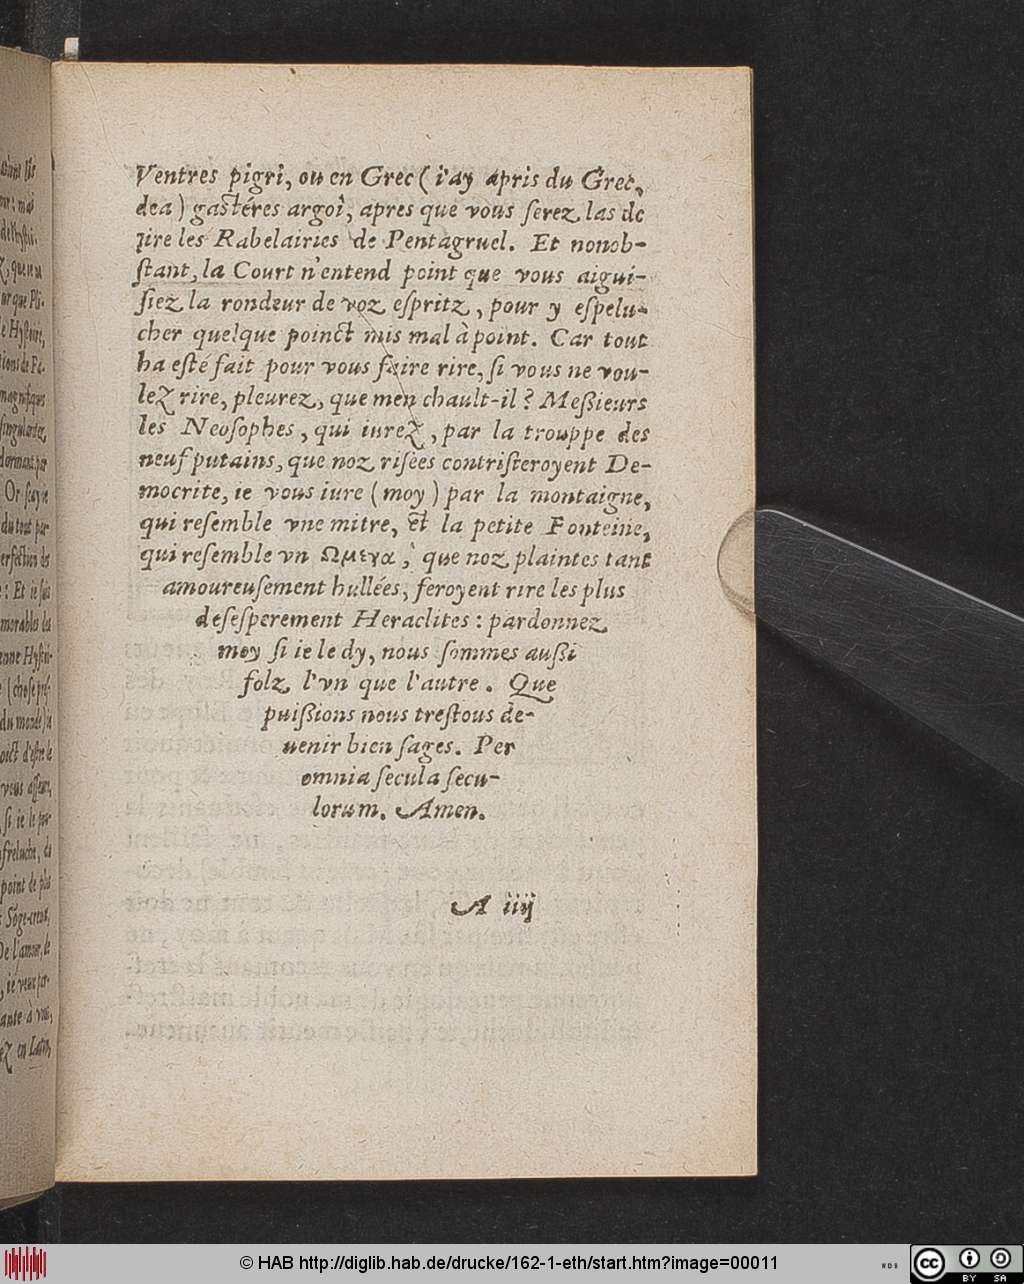 Ventres pigri, ou en Grec ( i'ay apris du Grec,
dea ) gastéres argoì, apres que vous ſerez las de
rire les Rabelairies de Pentagruel. Et nonob-
ſtant, la Court n'entend point que vous aigui-
ſiez la rondeur de voz eſpritz, pour y eſpelu-
cher quelque poinct mis mal à point. Car tout
ha eſté fait pour vous faire rire, ſi vous ne vou-
lez rire, pleurez, que m'en chault-il? Meßieurs
les Neoſophes, qui iurez, par la trouppe des
neuf putains, que noz riſées contriſteroyent De-
mocrite, ie vous iure ( moy ) par la montaigne,
qui reſemble vne mitre, et la petite Fonteine,
qui reſemble vn Ωμεγα, que noz plaintes tant
amoureuſement hullées, feroyent rire les plus
deſeſperement Heraclites : pardonnez
moy ſi ie le dy, nous ſommes außi
folz l'vn que l'autre. Que
puißions nous treſtous de-
uenir bien ſages. Per
omnia ſecula ſecu-
lorum. Amen.
A iiij
© HAB http://diglib.hab.de/drucke/162-1-eth/start.htm?image=00011
WDB
cc
BY SA